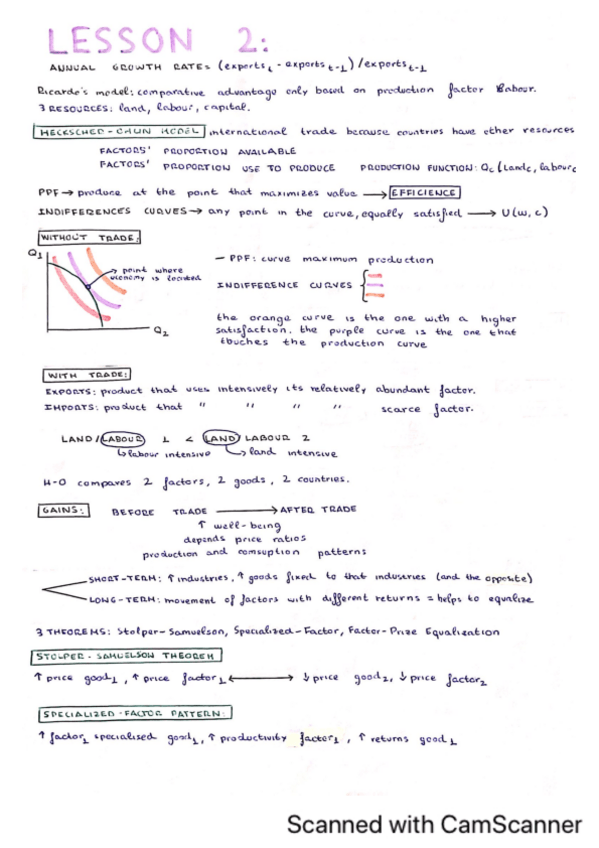 LESSON 2:
ANNUAL GROWTH RATE = (exports t - exports t-1) / exports t-1
Ricardo's model: comparative advantage only based on production factor labour.
3 RESOURCES: land, labour, capital.
HECKSCHED-OHLIN MODEL international trade because countries have other resources
FACTORS' PROPORTION AVAILABLE
FACTORS' PROPORTION USE TO PRODUCE PRODUCTION FUNCTION: Qc (Landc, labourc
PPF → produce at the point that maximizes value → EFFICIENCE
INDIFFERENCES CURVES → any point in the curve, equally satisfied → U(w, c)
WITHOUT TRADE:
Q1
→ point where
economy is located
Q2
– PPF: curve maximum production
INDIFFERENCE CURVES {
the orange curve is the one with a higher
satisfaction. the purple curve is the one that
touches the production curve
WITH TRADE:
EXPORTS: product that uses intensively its relatively abundant factor.
IMPORTS: product that " " " " scarce factor.
LAND/LABOUR 1 < LAND/LABOUR 2
↳ labour intensive ↳ land intensive
H-O compares 2 factors, 2 goods, 2 countries.
GAINS: BEFORE TRADE → AFTER TRADE
↑ well-being
depends price ratios
production and comsuption patterns
SHORT-TERM: ↑ industries, ↑ goods fixed to that industries (and the opposite)
LONG-TERM: movement of factors with different returns = helps to equalize
3 THEOREMS: Stolper-Samuelson, Specialized-Factor, Factor-Prize Equalization
STOLPER-SAMUELSON THEOREM
↑ price good1, ↑ price factor1 ↔ ↓ price good2, ↓ price factor2
SPECIALIZED-FACTOR PATTERN:
↑ factor1 specialised good1, ↑ productivity factor1, ↑ returns good1
Scanned with CamScanner